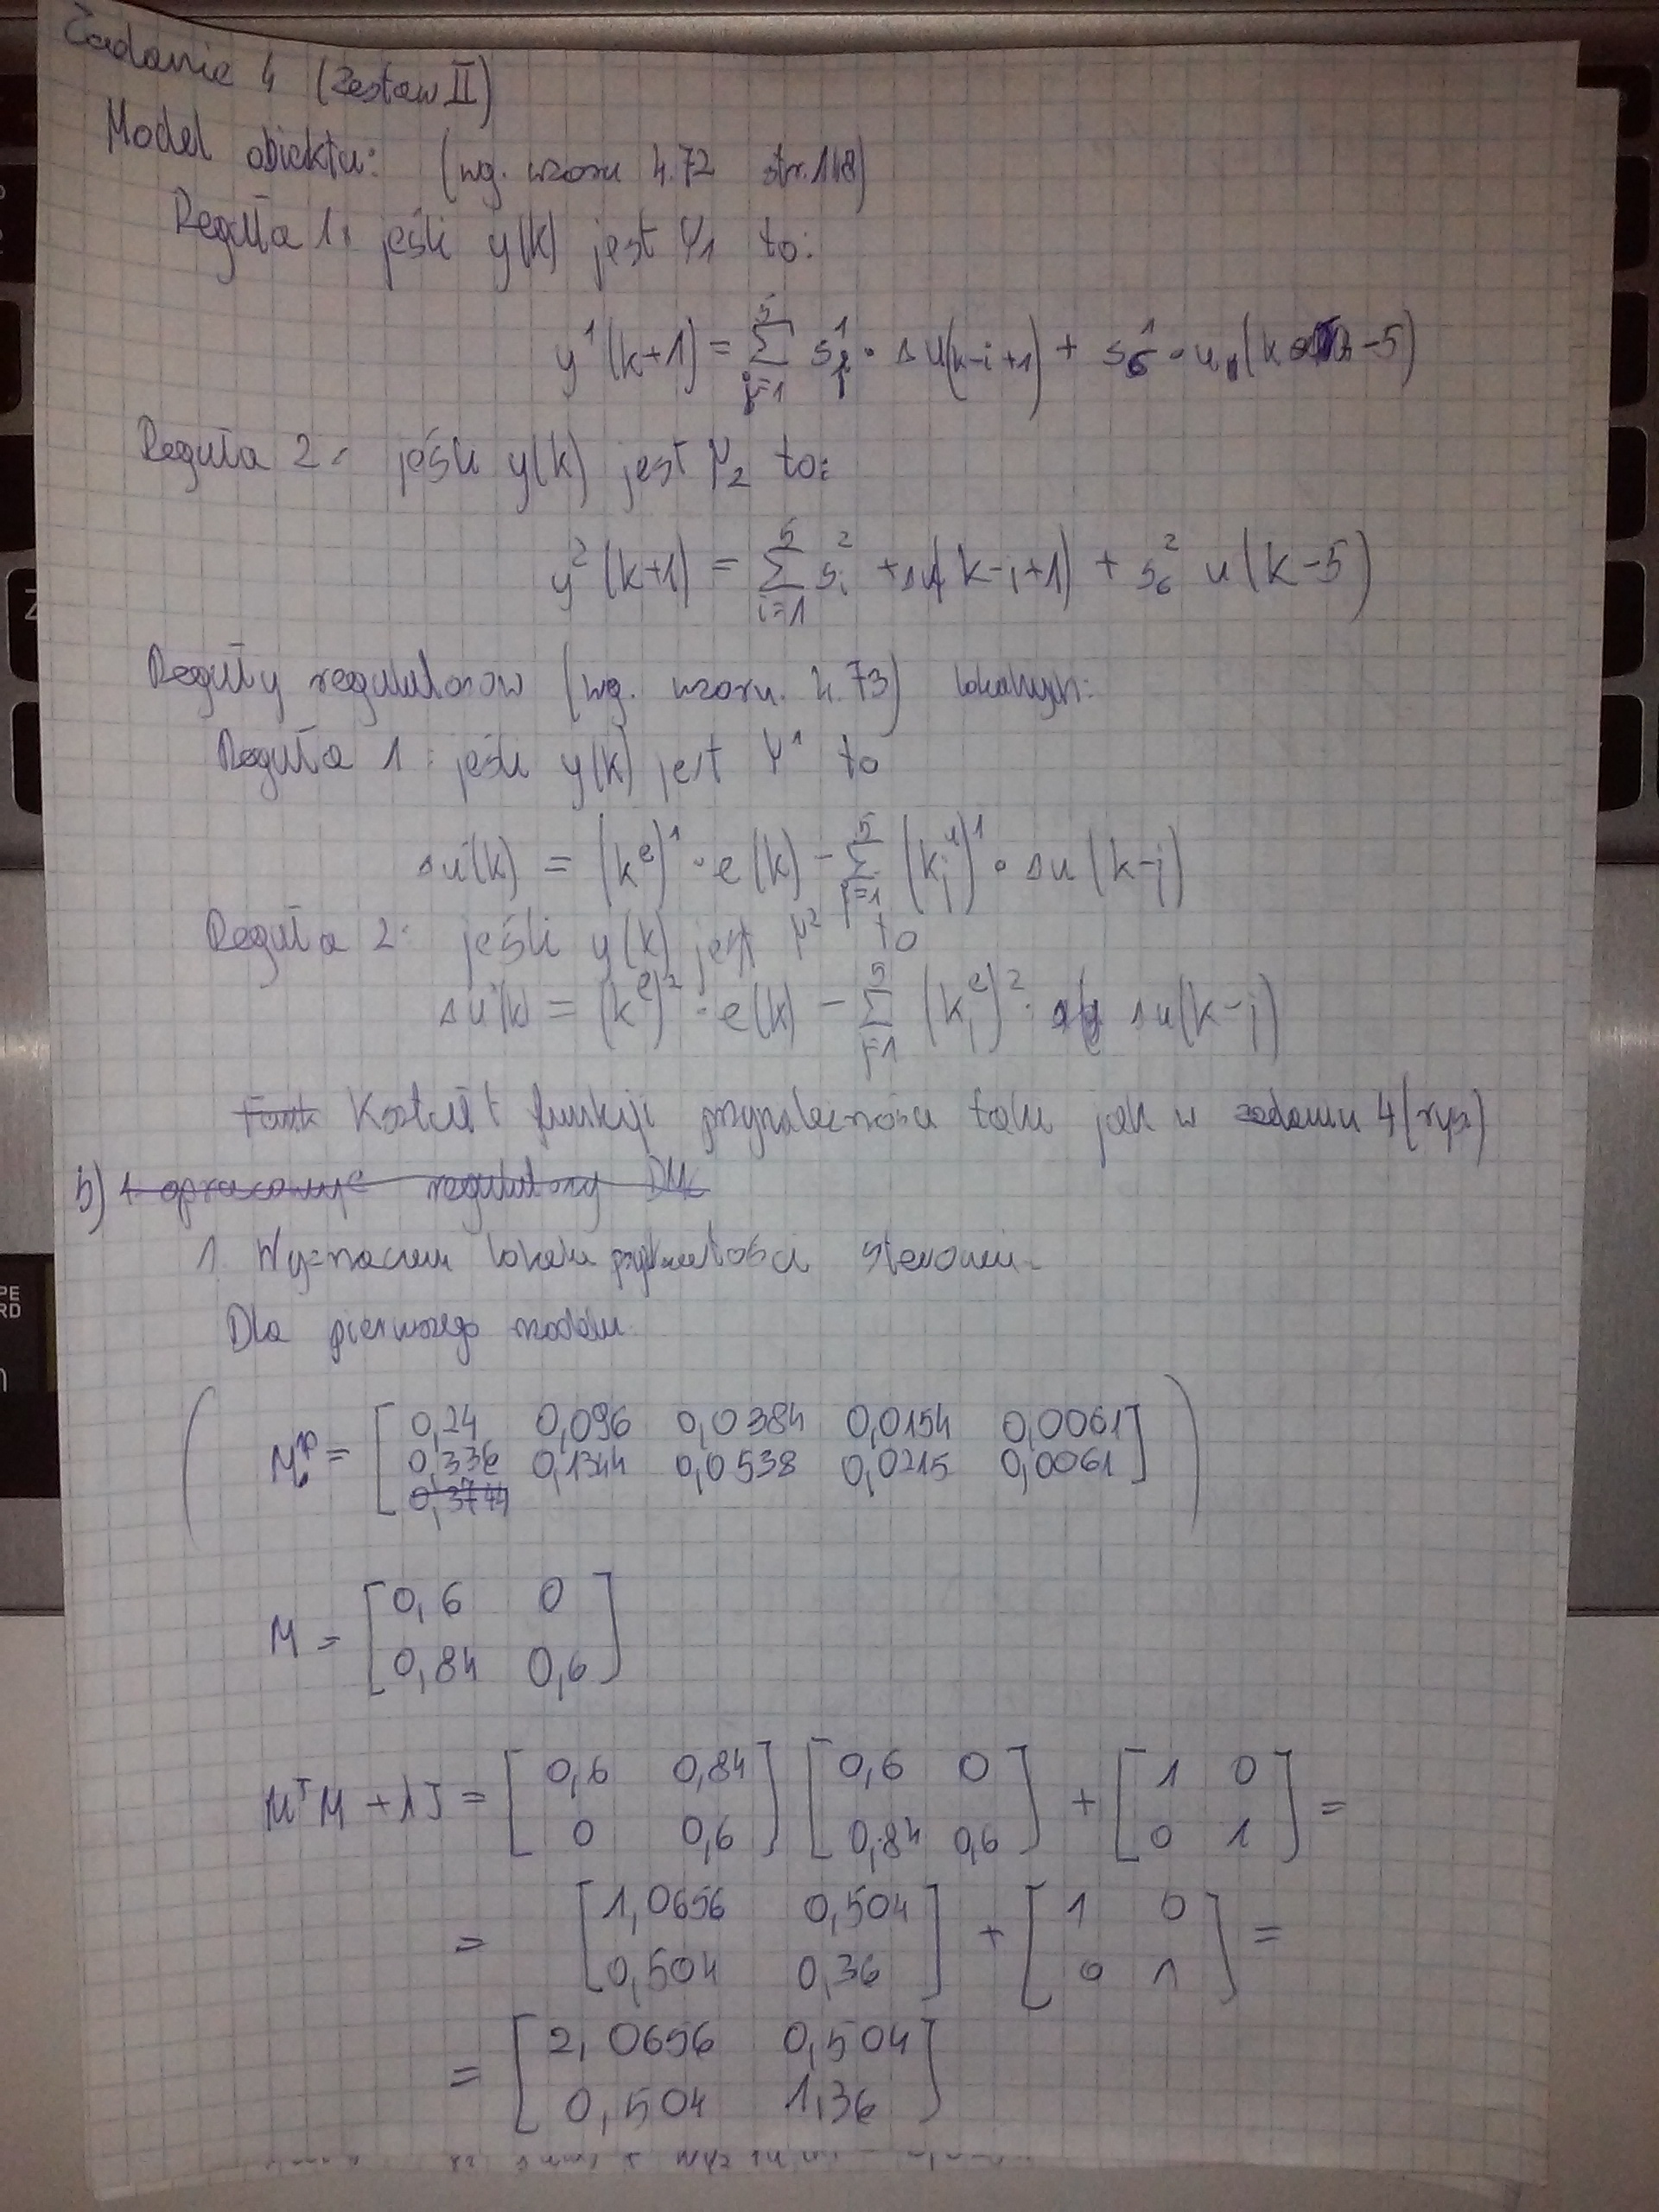 Zadanie 4 (Zestaw II)
Model obiektu: (wg. wzoru 4.72 str.148)
Reguła 1: jeśli y(k) jest Y1 to:
y^1(k+1) = Σ_{j=1}^{5} s_j^1 · Δu(k-i+1) + s_6^1 · u(k-5)
Reguła 2: jeśli y(k) jest Y2 to:
y^2(k+1) = Σ_{i=1}^{5} s_i^2 + Δu(k-i+1) + s_6^2 u(k-5)
Reguły regulatorów (wg. wzoru. 4.73) lokalnych:
Reguła 1: jeśli y(k) jest Y^1 to
Δu(k) = (k^e)^1 · e(k) - Σ_{j=1}^{5} (k_j^u)^1 · Δu(k-j)
Reguła 2: jeśli y(k) jest Y^2 to
Δu(k) = (k^e)^2 · e(k) - Σ_{j=1}^{5} (k_j^e)^2 · Δu(k-j)
Kształt funkcji przynależności taki jak w zadaniu 4 (rys)
b) 1 opracowuje regulatory DMC
1. Wyznaczam lokalne sterowań.
Dla pierwszego modelu
( M^p = [ 0,24 0,096 0,0384 0,0154 0,0061
0,336 0,1344 0,0538 0,0215 0,0061 ] )
0,3744
M = [ 0,6 0
0,84 0,6 ]
M^T M + λI = [ 0,6 0,84 ] [ 0,6 0 ] + [ 1 0 ] =
[ 0 0,6 ] [ 0,84 0,6 ] [ 0 1 ]
= [ 1,0656 0,504 ] + [ 1 0 ] =
[ 0,504 0,36 ] [ 0 1 ]
= [ 2,0656 0,504
0,504 1,36 ]